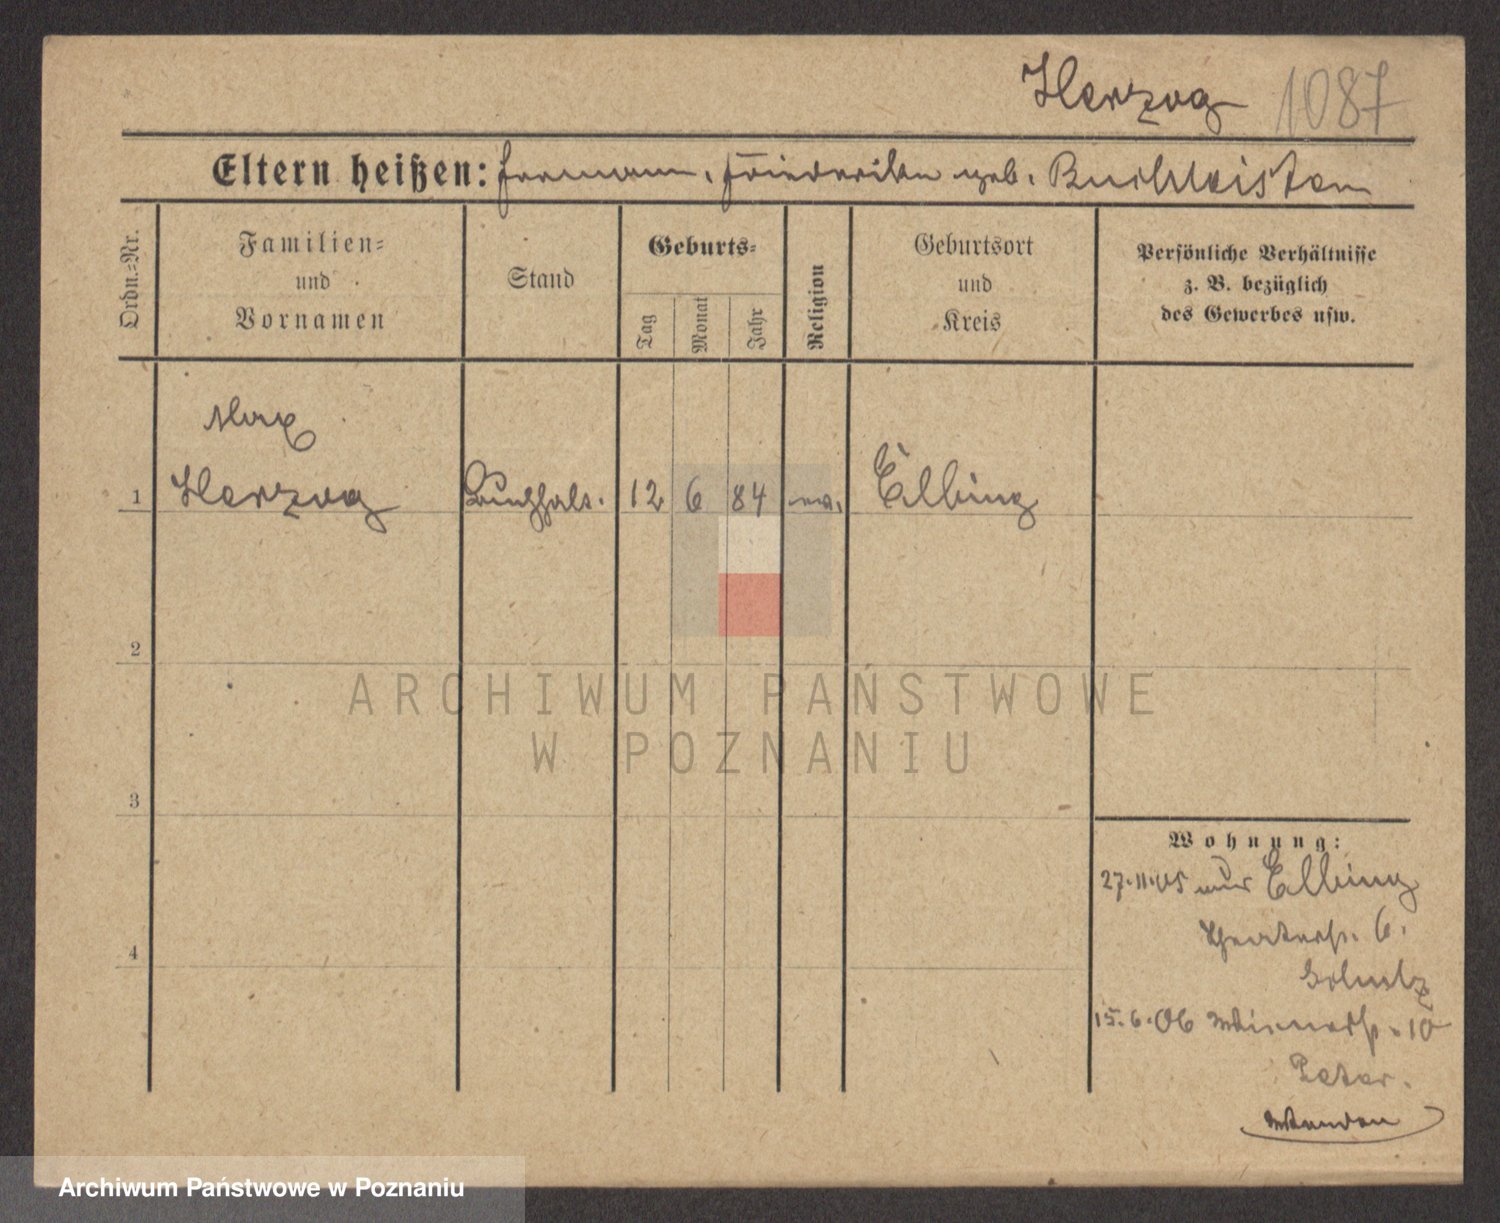 Herzog 1087
Eltern heißen: Hermann, Friederike geb. Buchleister
Ordn.-Nr.
Familien-
und
Vornamen
Stand
Geburts-
Tag
Monat
Jahr
Religion
Geburtsort
und
Kreis
Persönliche Verhältnisse
z. B. bezüglich
des Gewerbes usw.
Max
1 Herzog Buchhalt. 12 6 84 Elbing
2
ARCHIWUM PAŃSTWOWE
W POZNANIU
3
Wohnung:
27.11.05 Elbing
Theaterstr. 6.
4
15.6.06 10
Peter.
Archiwum Państwowe w Poznaniu